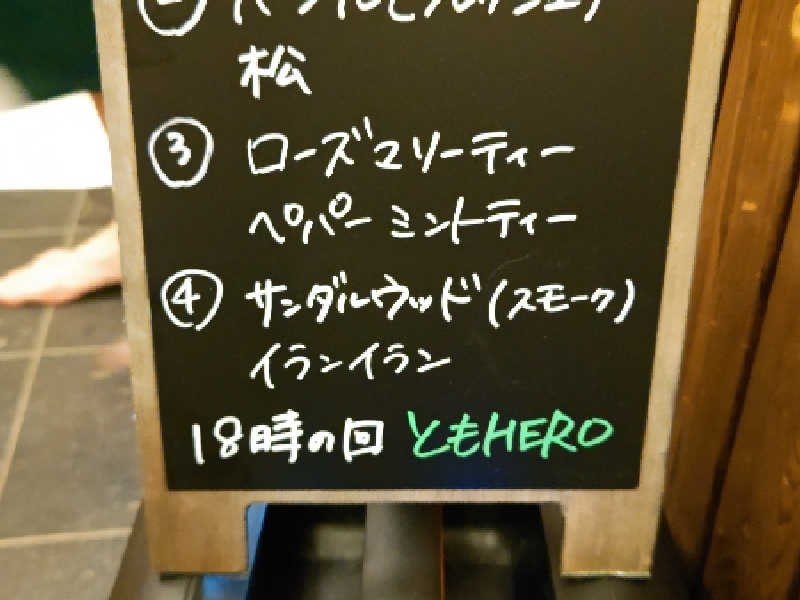 松
③ ローズマリーティー
ペパーミントティー
④ サンダルウッド(スモーク)
イランイラン
18時の回 ともHERO